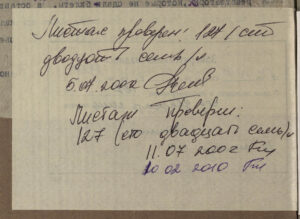 Листаж проверен: 127 / сто
двадцать семь /л
5.04.2002
Листаж Проверен:
127 (сто двадцать семь/л
11.07 2002
10 02 2010